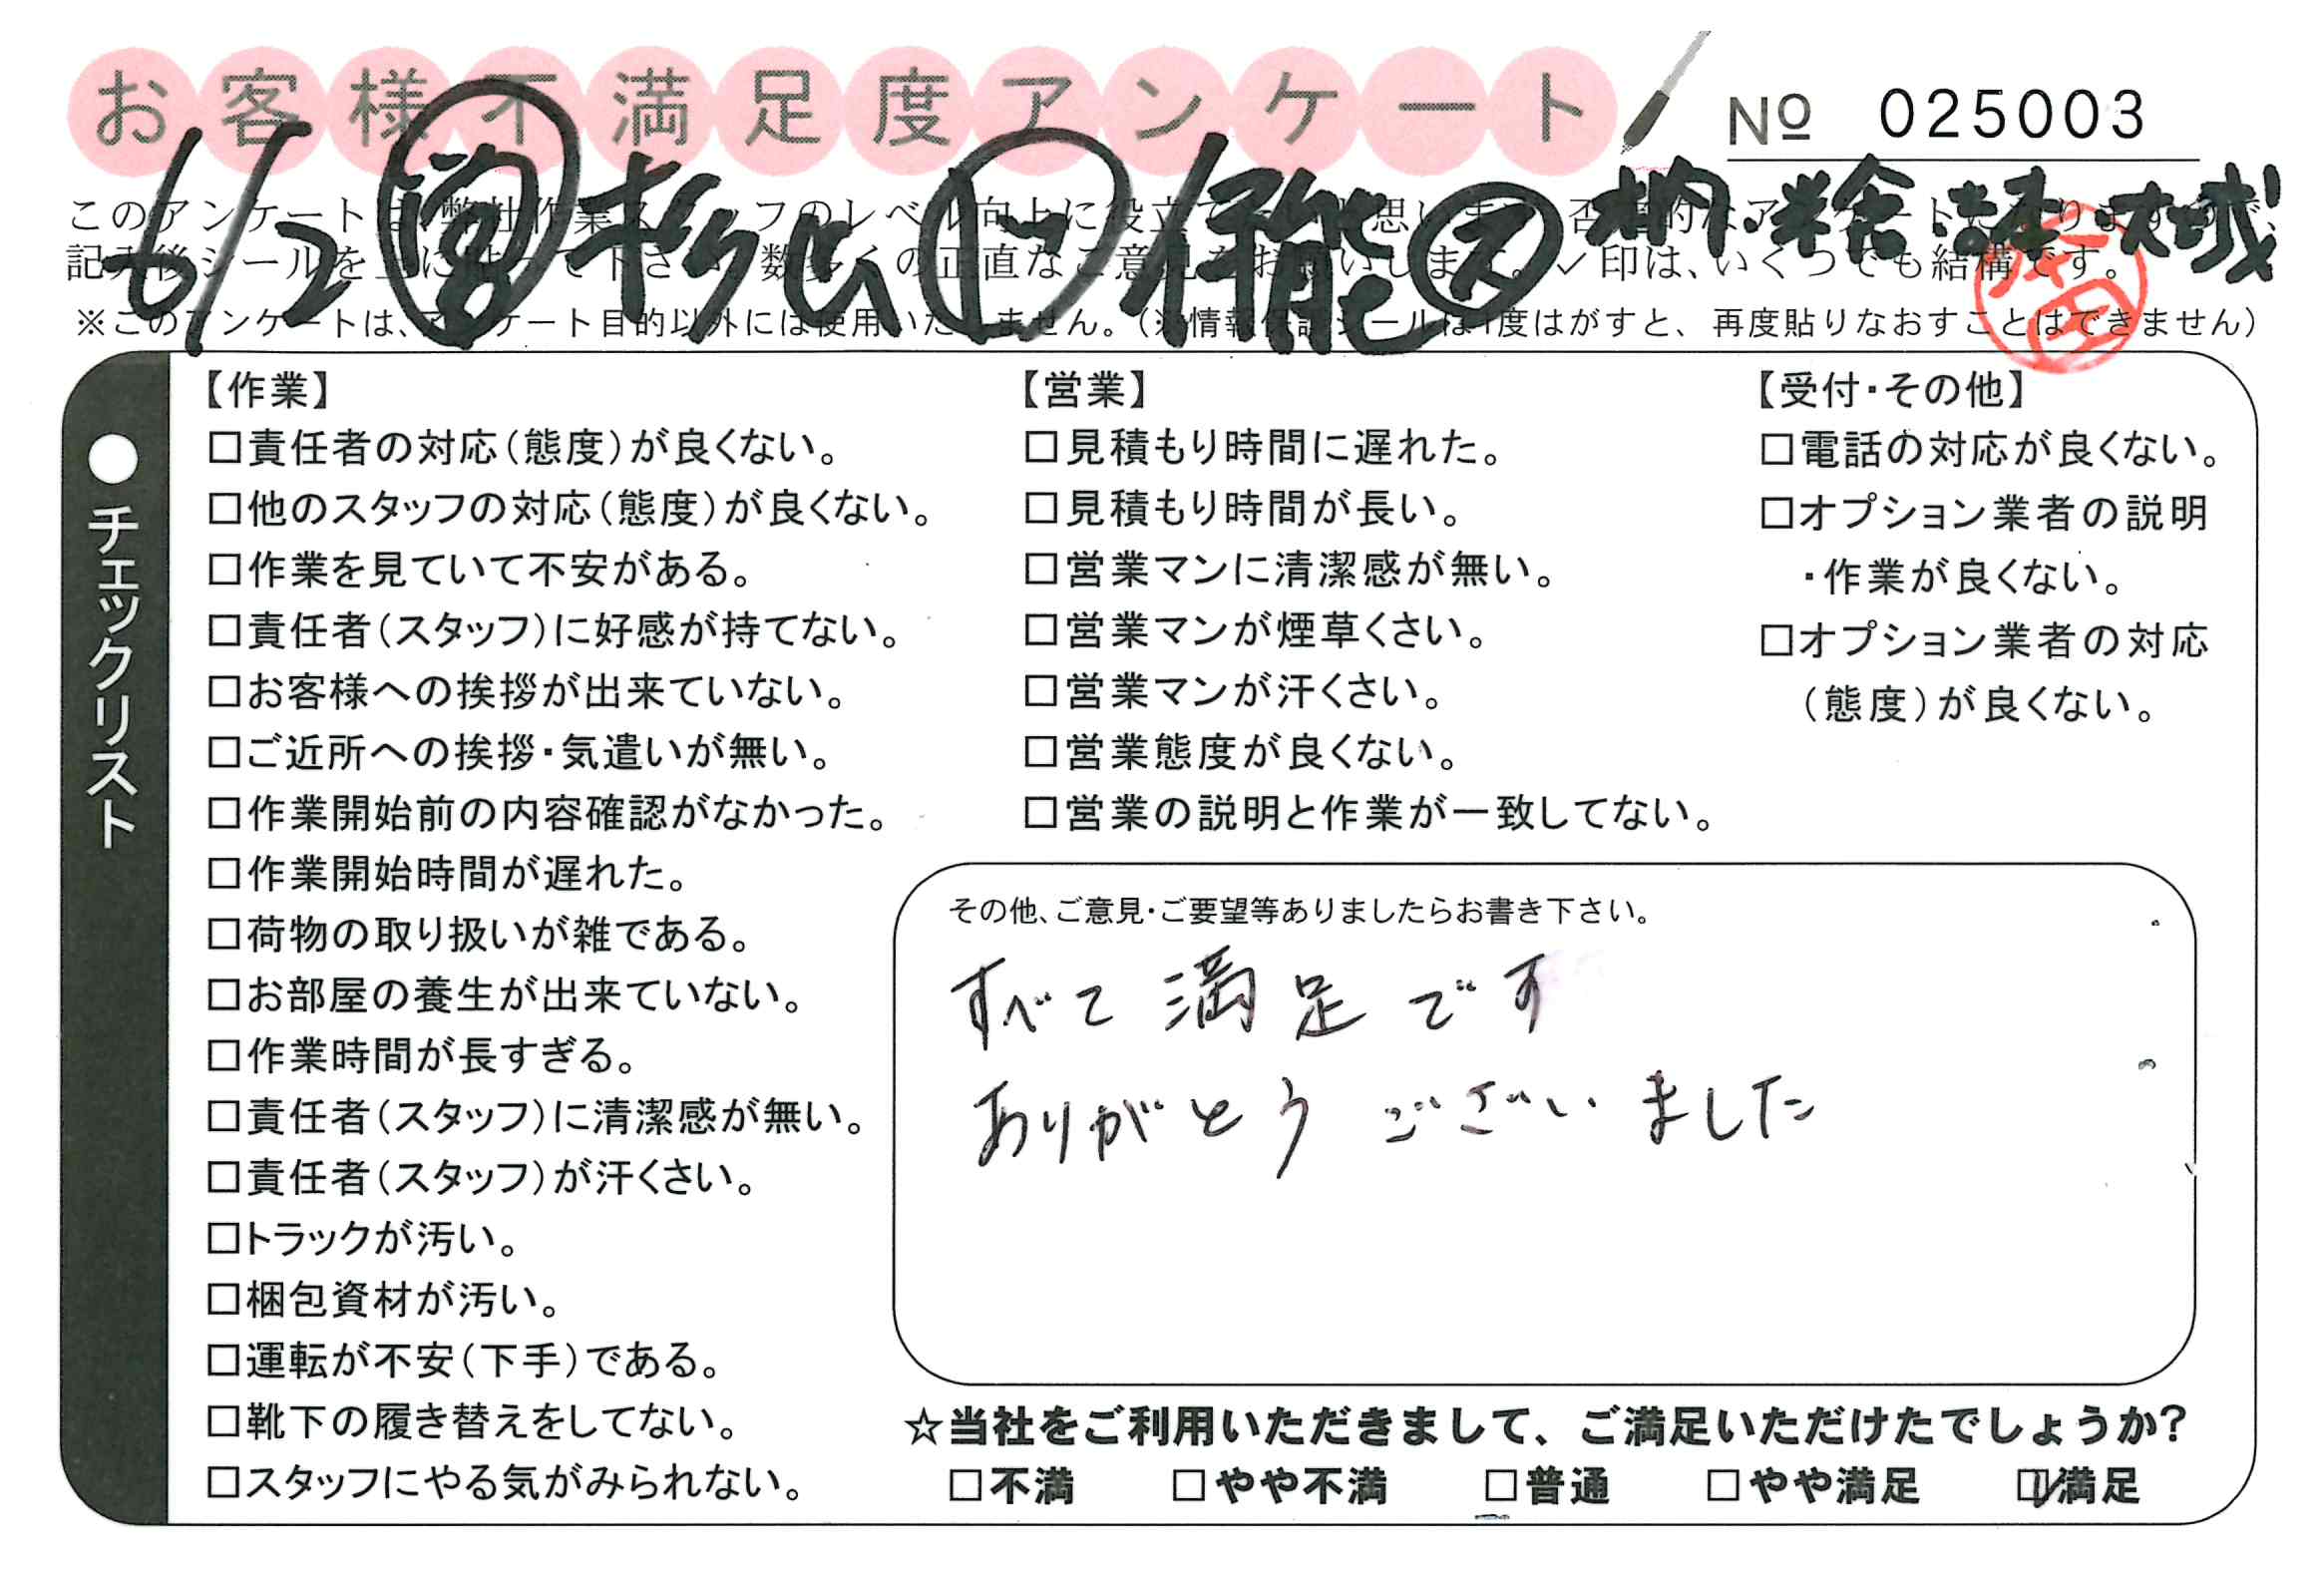 お客様不満足度アンケート
№ 025003
6/2 杉山 伊能 ス 大城
※このアンケートは、アンケート目的以外には使用いたしません。(※情報保護シールは1度はがすと、再度貼りなおすことはできません)
本田
チェックリスト
【作業】
□責任者の対応(態度)が良くない。
□他のスタッフの対応(態度)が良くない。
□作業を見ていて不安がある。
□責任者(スタッフ)に好感が持てない。
□お客様への挨拶が出来ていない。
□ご近所への挨拶・気遣いが無い。
□作業開始前の内容確認がなかった。
□作業開始時間が遅れた。
□荷物の取り扱いが雑である。
□お部屋の養生が出来ていない。
□作業時間が長すぎる。
□責任者(スタッフ)に清潔感が無い。
□責任者(スタッフ)が汗くさい。
□トラックが汚い。
□梱包資材が汚い。
□運転が不安(下手)である。
□靴下の履き替えをしてない。
□スタッフにやる気がみられない。
【営業】
□見積もり時間に遅れた。
□見積もり時間が長い。
□営業マンに清潔感が無い。
□営業マンが煙草くさい。
□営業マンが汗くさい。
□営業態度が良くない。
□営業の説明と作業が一致してない。
【受付・その他】
□電話の対応が良くない。
□オプション業者の説明
・作業が良くない。
□オプション業者の対応
(態度)が良くない。
その他、ご意見・ご要望等ありましたらお書き下さい。
すべて満足です
ありがとうございました
☆当社をご利用いただきまして、ご満足いただけたでしょうか?
□不満 □やや不満 □普通 □やや満足 ☑満足